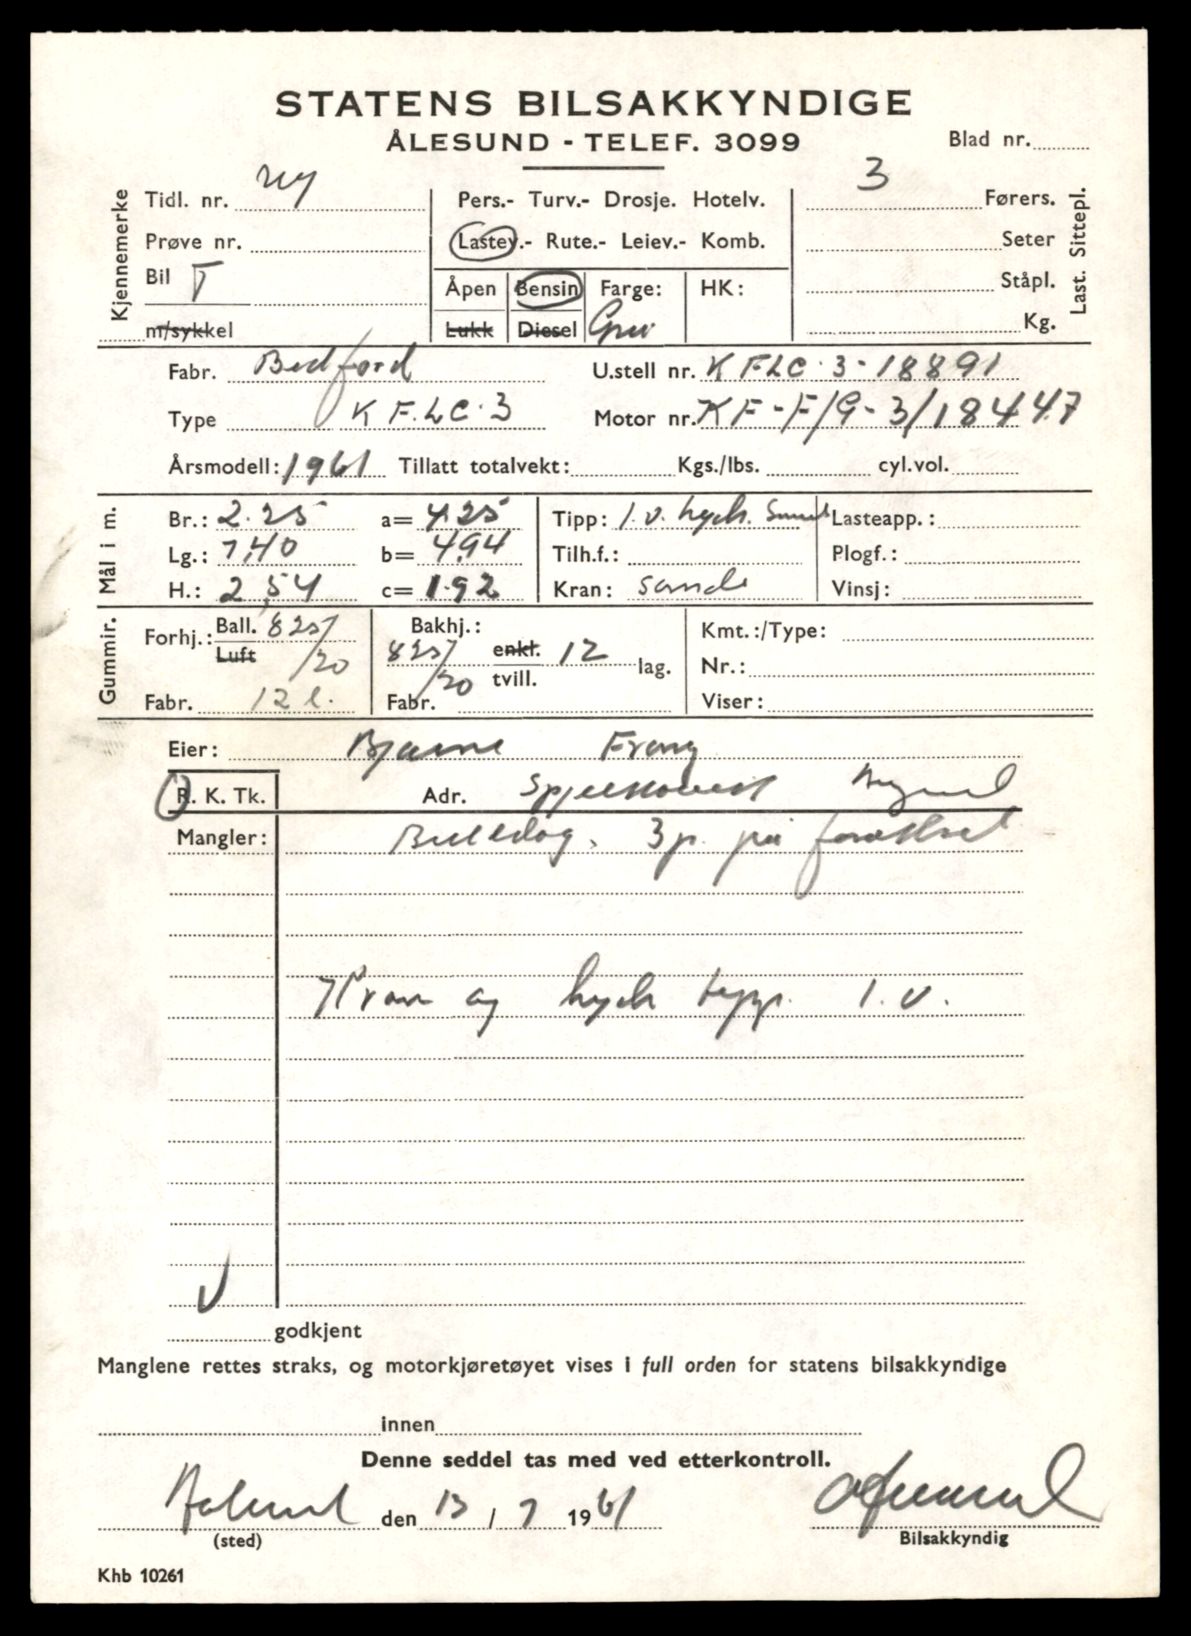 STATENS BILSAKKYNDIGE
ÅLESUND - TELEF. 3099
Blad nr.
Kjennemerke
Tidl. nr. ny
Prøve nr.
Bil T
m/sykkel
Pers.- Turv.- Drosje. Hotelv.
Lastev.- Rute.- Leiev.- Komb.
Åpen Bensin Farge: HK:
Lukk Diesel
3 Førers.
Seter
Ståpl.
Kg.
Last. Sittepl.
Fabr. Bedford U.stell nr. KFLC·3-18891
Type KF.LC·3 Motor nr. KF-F/G-3/18447
Årsmodell: 1961 Tillatt totalvekt: Kgs./lbs. cyl.vol.
Mål i m.
Br.: 2.25 a= 4.25 Tipp: 1.v. hydr. Lasteapp.:
Lg.: 7,40 b= 4,94 Tilh.f.: Plogf.:
H.: 2,54 c= 1.92 Kran: Vinsj:
Gummir.
Forhj.: Ball. 825/20 Bakhj.: Kmt.:/Type:
Luft 825/20 enkt. 12 lag. Nr.:
tvill.
Fabr. 12 l. Fabr. Viser:
Eier: Bjarne
R. K. Tk. Adr.
Mangler: Bulldog, 3 p. på forsetet
Kran og hydr. tipp. 1.v.
V
godkjent
Manglene rettes straks, og motorkjøretøyet vises i full orden for statens bilsakkyndige
innen
Denne seddel tas med ved etterkontroll.
Aalesund den 13 / 7 1961
(sted) Bilsakkyndig
Khb 10261